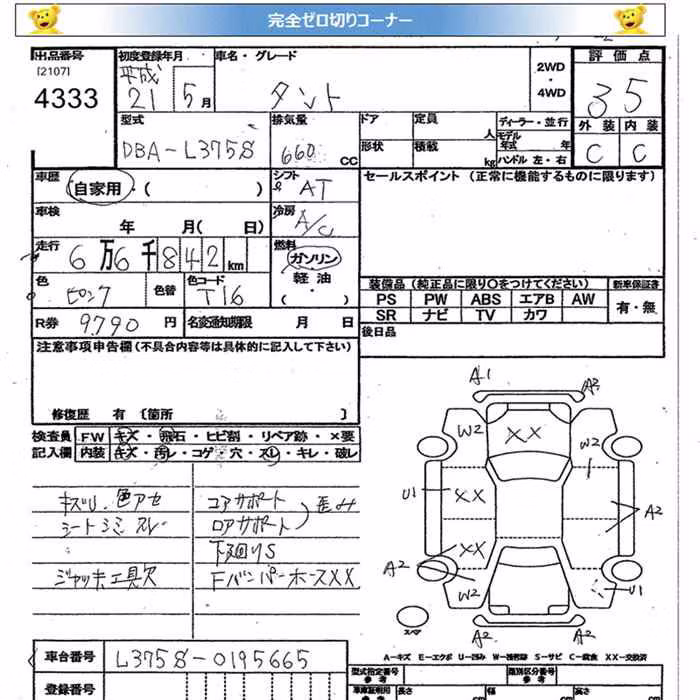 完全ゼロ切りコーナー
出品番号 初度登録年月 車名・グレード 2WD ・ 4WD 評価点
[2107] 4333 平成 21 5月 タント 3.5
型式 排気量 ドア 定員 人 ディーラー・並行 外装 内装
DBA-L375S 660 CC 形状 積載 kg モデル年式 年 ハンドル 左・右 C C
車歴 自家用・( ) シフト AT セールスポイント (正常に機能するものに限ります)
車検 年 月( 日) 冷房 A/C
走行 6万6千842km 燃料 ガソリン 軽油 ( ・ )
色 ピンク 色替 色コード T16 装備品(純正品に限り○をつけてください) 新車保証書
PS PW ABS エアB AW 有・無
SR ナビ TV カワ
R券 9790円 名変通知期限 月 日 後日品
注意事項申告欄(不具合内容等は具体的に記入して下さい)
修復歴 有 [箇所 ]
検査員 FW キズ・飛石・ヒビ割・リペア跡・×要
記入欄 内装 キズ・汚レ・コゲ・穴・スレ・キレ・破レ
キズU、色アセ コアサポート 歪み
シートシミ スレ ロアサポート
下廻りS
ジャッキ工具欠 FバンパーホースXX
A1 A2
W2 XX W2
U1 XX A2
XX
A2 W2 U1
スペア A2 A2
A-キズ E-エクボ U-凹み W-補修跡 S-サビ C-腐食 XX-交換済
車台番号 L375S-0195665 型式指定番号 参考 類別区分番号 参考
登録番号 車庫証明用 参考 長さ 幅 高さ